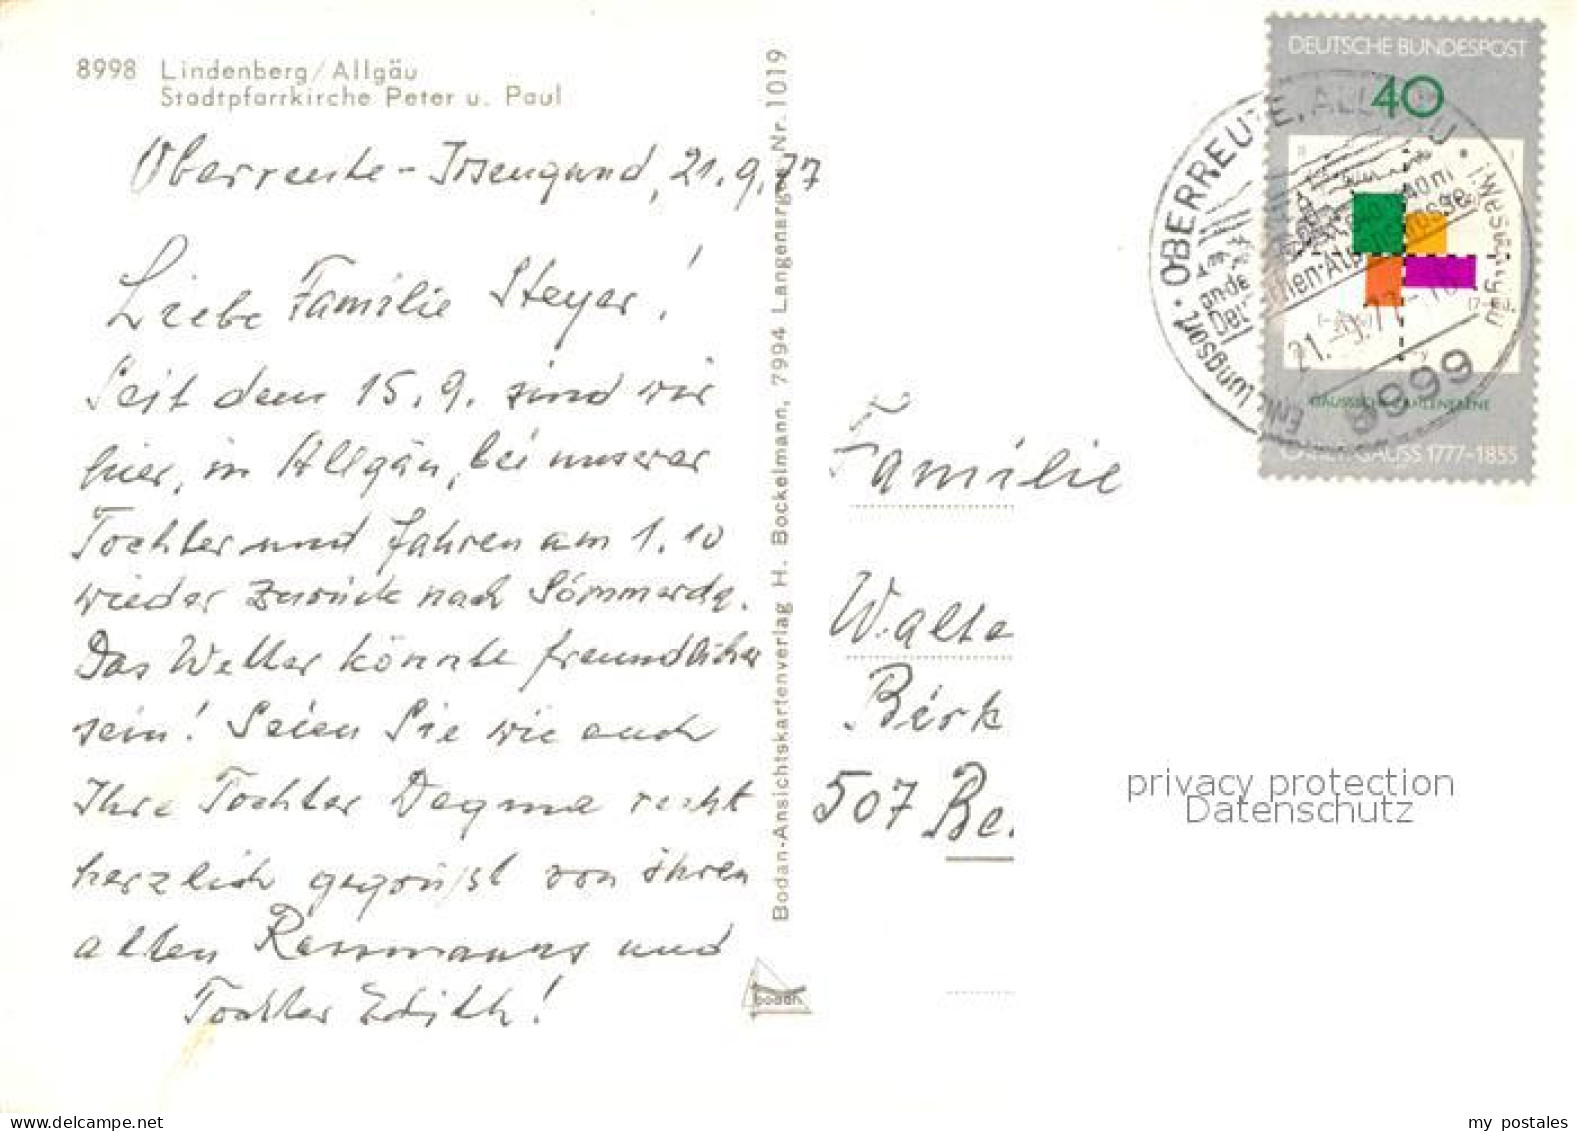 8998 Lindenberg/Allgäu
Stadtpfarrkirche Peter u. Paul
Oberreute-Irsengund, 21.9.77
Liebe Familie Steyer!
Seit dem 15.9. sind wir
hier, in Allgäu, bei unserer
Tochter und fahren am 1.10
wieder zurück nach Sömmerda.
Das Wetter könnte freundlicher
sein! Seien Sie wie auch
Ihre Tochter Dagma recht
herzlich gegrüßt von ihren
alten und
Tochter Edith!
Bodan-Ansichtskartenverlag H. Bockelmann, 7994 Langenargen Nr. 1019
bodan
Familie
Walte
Birk
507 Be.
DEUTSCHE BUNDESPOST
40
GAUSSSCHE ZAHLENEBENE
GAUSS 1777-1855
OBERREUTE, ALLGÄU
21.-9.77-18
8999
privacy protection
Datenschutz
my postales
www.delcampe.net